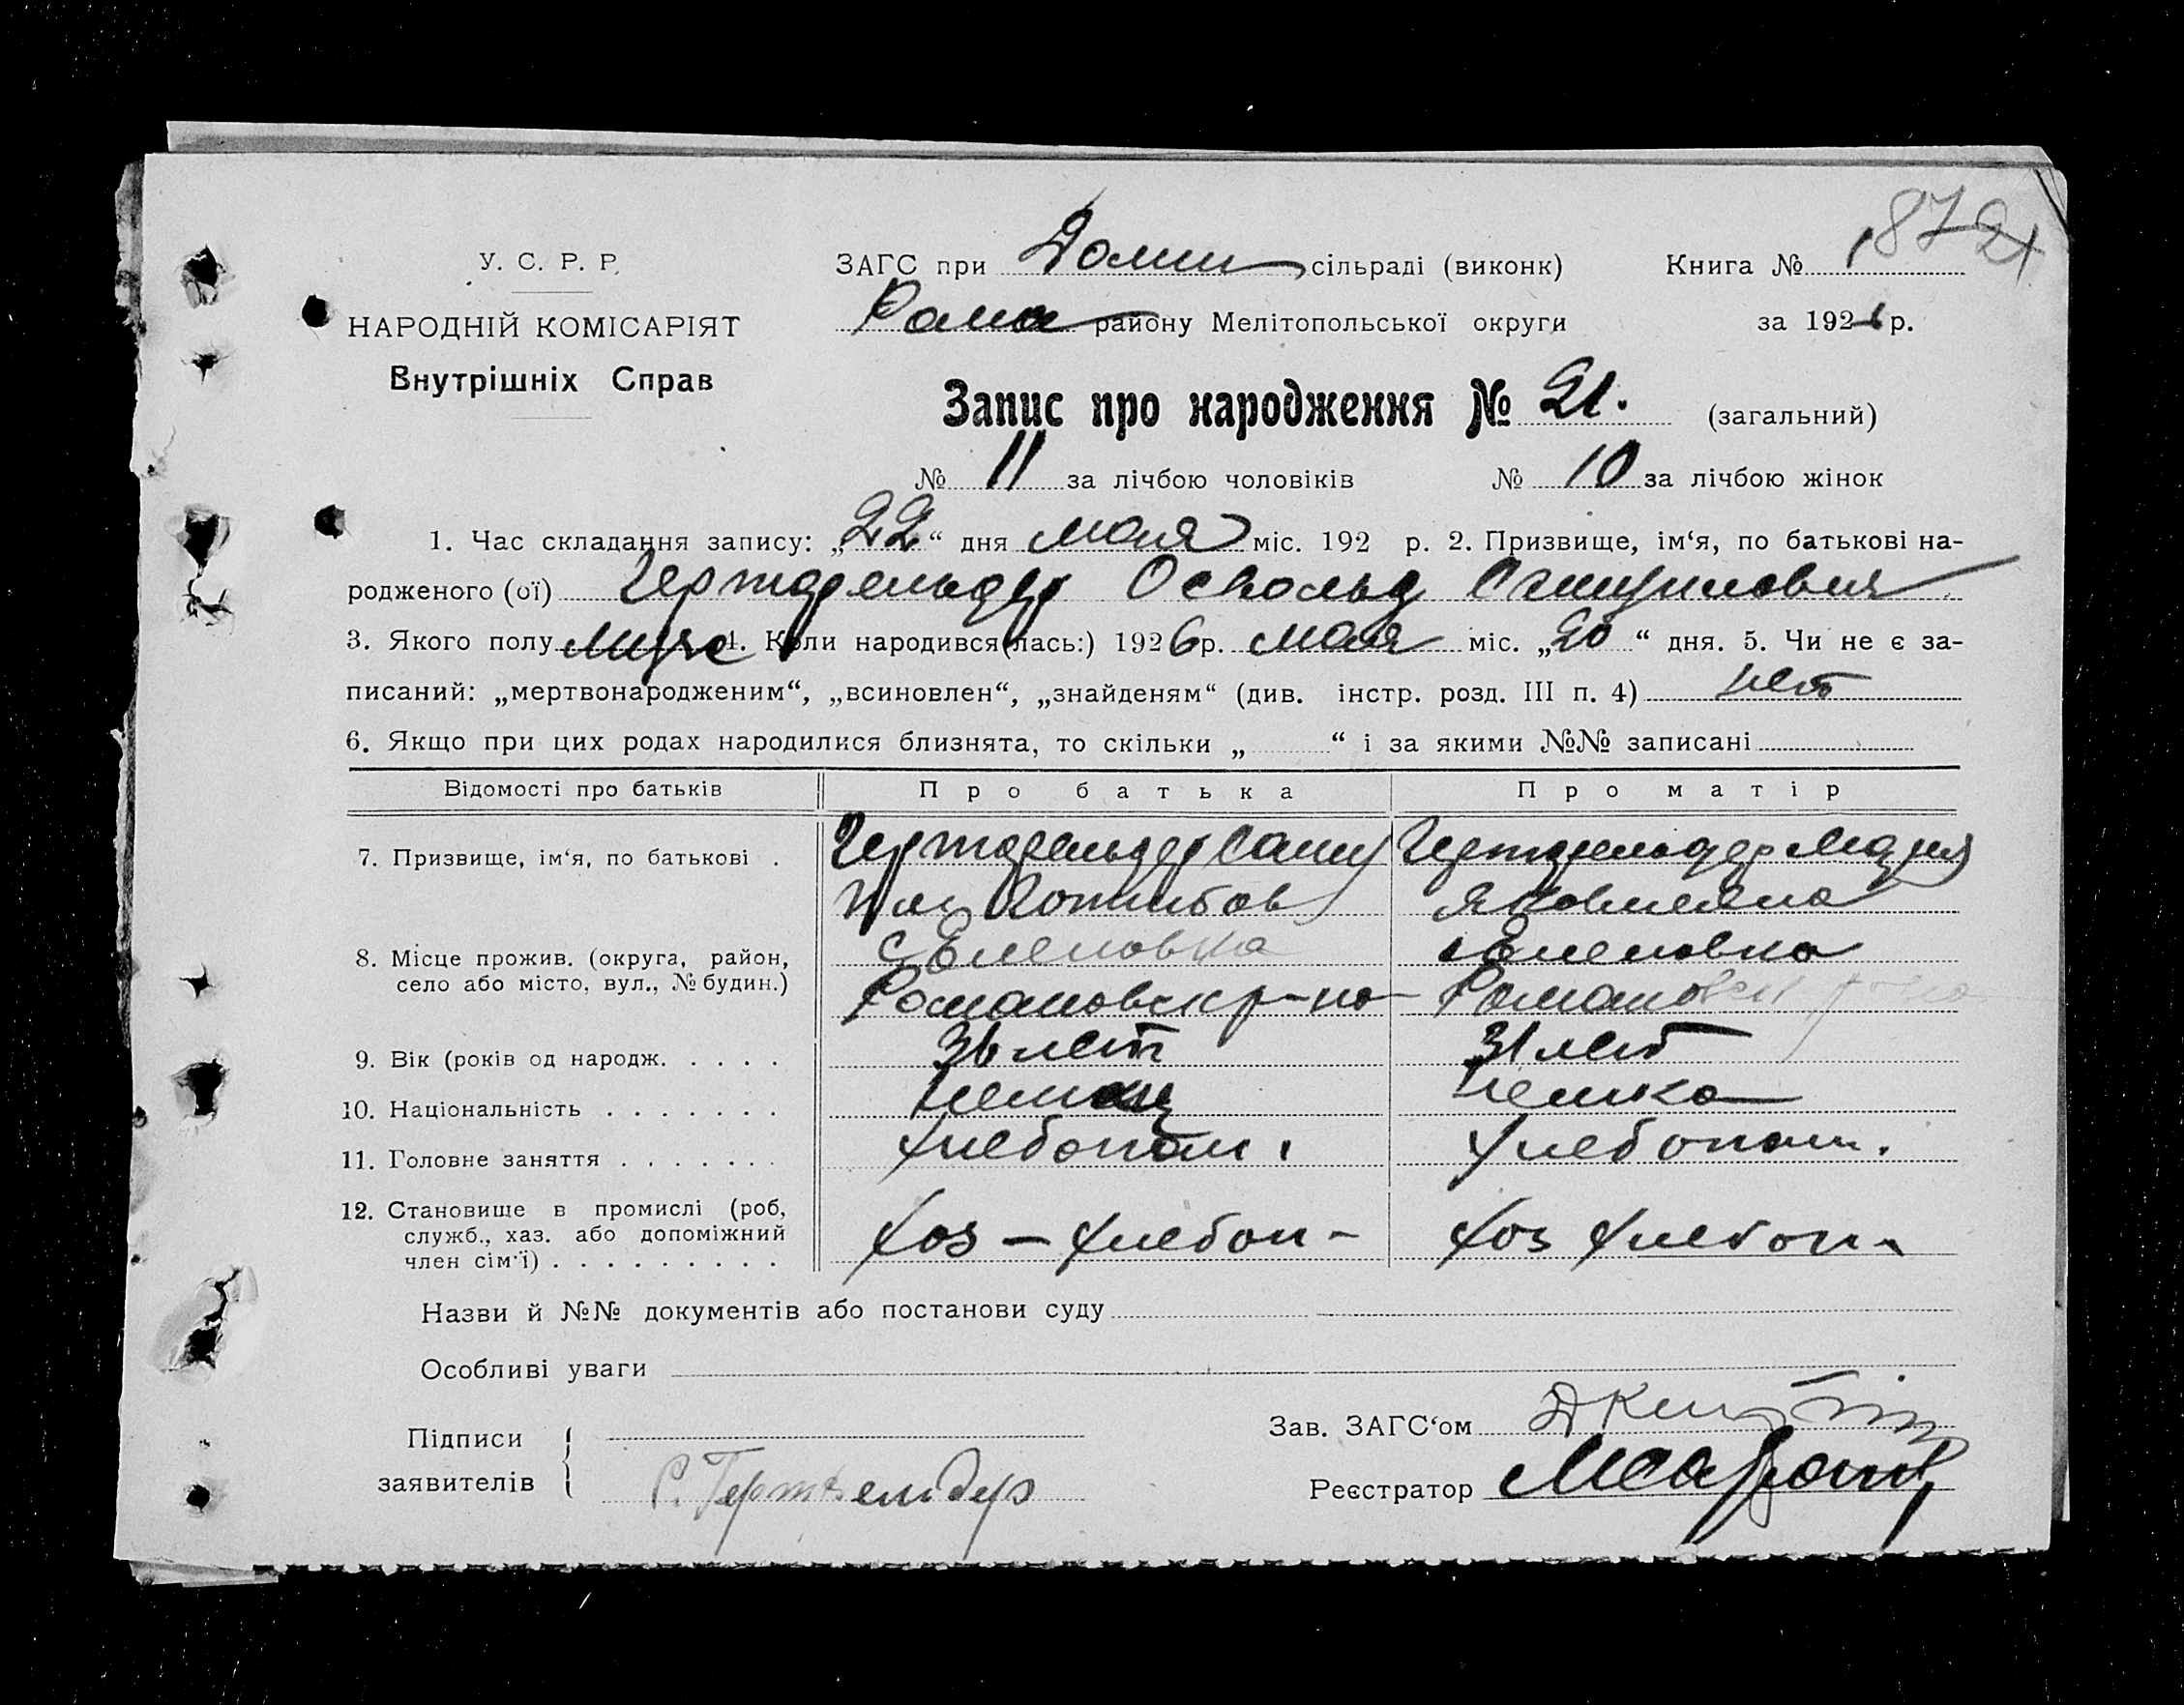 872
У. С. Р. Р.
ЗАГС при Долин сільраді (виконк) Книга № 1 21
НАРОДНІЙ КОМІСАРІЯТ
Рома району Мелітопольської округи за 1926 р.
Внутрішніх Справ
Запис про народження № 21. (загальний)
№ 11 за лічбою чоловіків № 10 за лічбою жінок
1. Час складання запису: „22“ дня мая міс. 192 р. 2. Призвище, ім‘я, по батькові на-
родженого (ої) Гертфельдер Оскольд
3. Якого полу муж 4. Коли народився(лась:) 1926 р. мая міс. „20“ дня. 5. Чи не є за-
писаний: „мертвонародженим“, „всиновлен“, „знайденям“ (див. інстр. розд. III п. 4) нет
6. Якщо при цих родах народилися близнята, то скільки „ “ і за якими №№ записані
Відомості про батьків Про батька Про матір
7. Призвище, ім‘я, по батькові . Гертфельдер Гертфельдер Мария
Яковлевна
8. Місце прожив. (округа, район, с Еленовка с Еленовка
село або місто, вул., № будин.) Романовск р-на Романовск района
9. Вік (років од народж. . . . . 36 лет 31 лет
10. Національність . . . . . . . немец немка
11. Головне заняття . . . . . . . хлебопаш. хлебопаш.
12. Становище в промислі (роб,
служб., хаз. або допоміжний хоз – хлебоп – хоз хлебоп –
член сім‘ї) . . . . . . . . .
Назви й №№ документів або постанови суду
Особливі уваги
Зав. ЗАГС‘ом
Підписи
заявителів Гертфельдер
Реєстратор